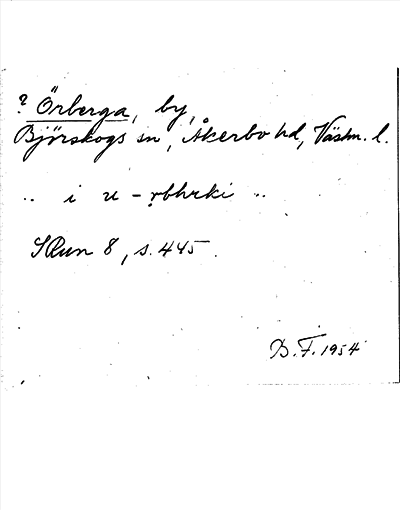 ? Örberga, by,
Björskogs sn, Åkerbo hd, Västm. l.
.. i u - ṛbhrki ..
SRun 8, s. 445.
B. F. 1954